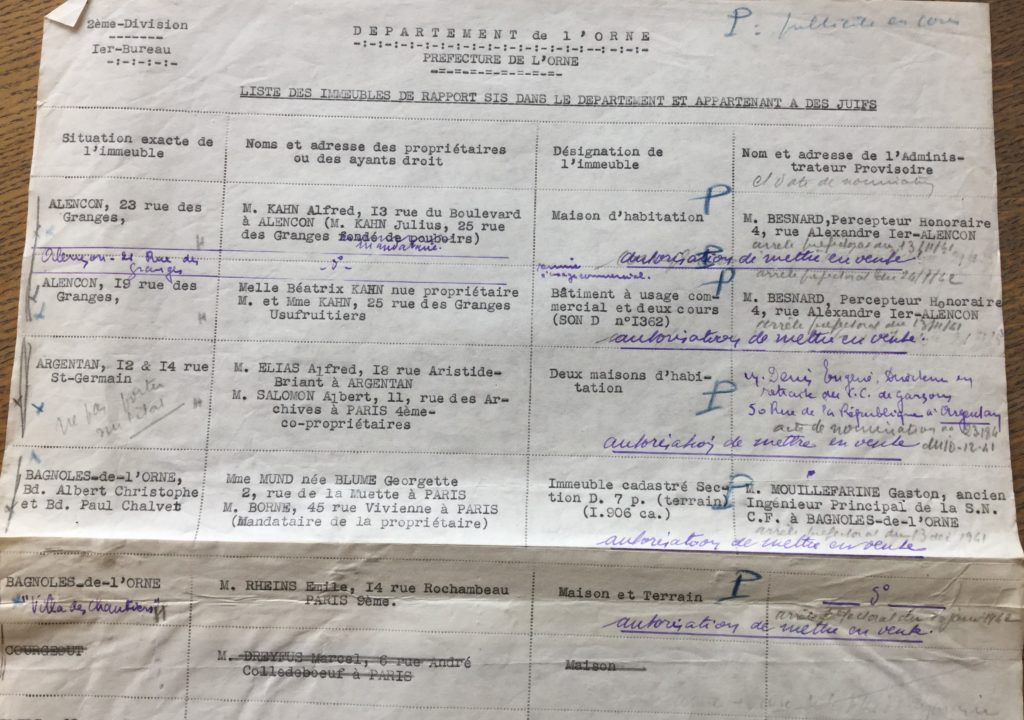 2ème-Division
Ier-Bureau
DEPARTEMENT de l'ORNE
PREFECTURE DE L'ORNE
P: publicité en cours
LISTE DES IMMEUBLES DE RAPPORT SIS DANS LE DEPARTEMENT ET APPARTENANT A DES JUIFS
Situation exacte de
l'immeuble
Noms et adresse des propriétaires
ou des ayants droit
Désignation de
l'immeuble
Nom et adresse de l'Adminis-
trateur Provisoire
et date de nomination
ALENCON, 23 rue des
Granges,
M. KAHN Alfred, I3 rue du Boulevard
à ALENCON (M. KAHN Julius, 25 rue
des Granges fondé de pouboirs)
mandataire
Maison d'habitation
P
M. BESNARD,Percepteur Honoraire
4, rue Alexandre Ier-ALENCON
arrêté préfectoral du 13/11/41
Alençon - 21 Rue des
Granges
- d° -
à usage commercial
P
autorisation de mettre en vente
arrêté préfectoral du
ALENCON, I9 rue des
Granges,
Melle Béatrix KAHN nue propriétaire
M. et Mme KAHN, 25 rue des Granges
Usufruitiers
Bâtiment à usage com-
mercial et deux cours
(SON D n°I362)
P
M. BESNARD, Percepteur Honoraire
4, rue Alexandre Ier-ALENCON
arrêté préfectoral du 13/11/41
autorisation de mettre en vente.
ARGENTAN, I2 & I4 rue
St-Germain
ne pas porter
sur l'état
M. ELIAS Alfred, I8 rue Aristide-
Briant à ARGENTAN
M. SALOMON Albert, 11, rue des Ar-
chives à PARIS 4ème-
co-propriétaires
Deux maisons d'habi-
tation
P
M. Denis Eugène, Directeur en
retraite du C.C. de garçons
50 Rue de la République à Argentan
acte de nomination no 23941
du 10-12-41
autorisation de mettre en vente
BAGNOLES-de-l'ORNE,
Bd. Albert Christophe
et Bd. Paul Chalvet
Mme MUND née BLUME Georgette
2, rue de la Muette à PARIS
M. BORNE, 45 rue Vivienne à PARIS
(Mandataire de la propriétaire)
Immeuble cadastré Sec-
tion D. 7 p. (terrain)
(I.906 ca.)
P
M. MOUILLEFARINE Gaston, ancien
Ingénieur Principal de la S.N.
C.F. à BAGNOLES-de-l'ORNE
arrêté préfectoral du 13 1941
autorisation de mettre en vente
BAGNOLES-de-l'ORNE
"Villa des Chantiers"
M. RHEINS Emile, I4 rue Rochambeau
PARIS 9ème.
Maison et Terrain
P
d°
arrêté préfectoral du 1942
autorisation de mettre en vente.
COURGEOUT
M. DREYFUS Marcel, 6 rue André
Colledeboeuf à PARIS
Maison